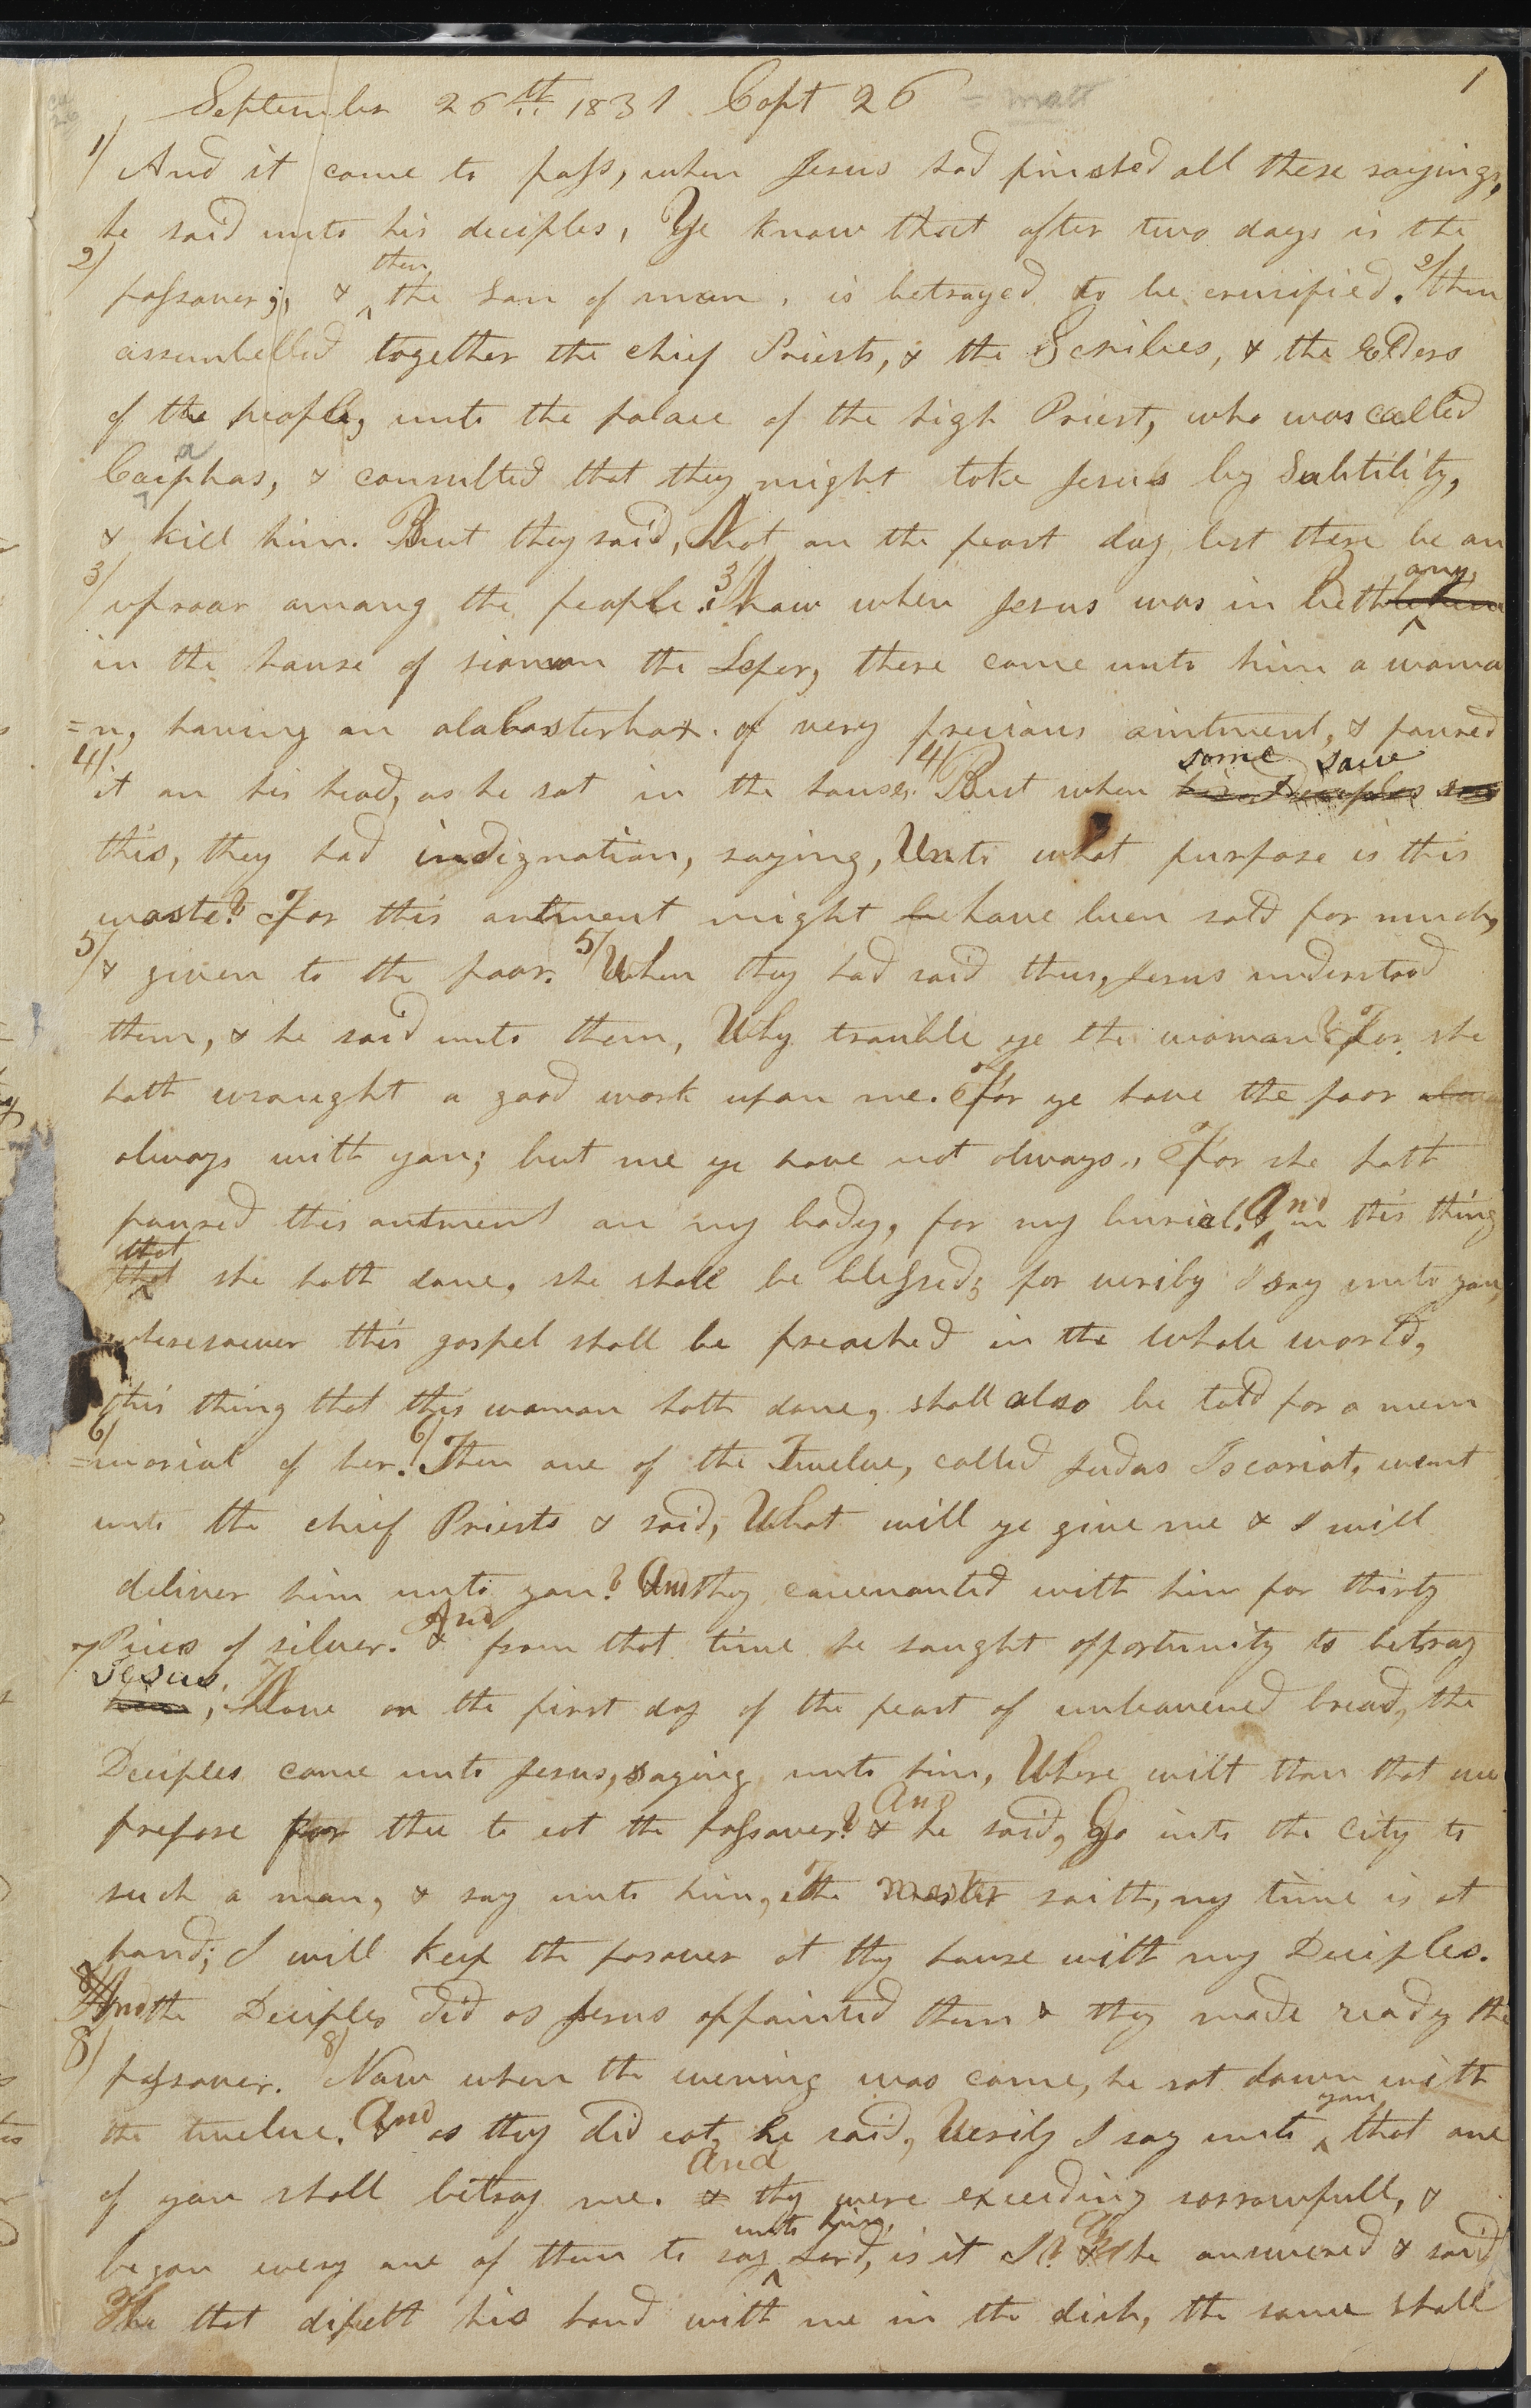 1
September 26th 1831 Capt 26 = matt
1/ And it came to pass, when Jesus had finished all these sayings,
he said unto his deciples, Ye know that after two days is the
2/ passover; & then the Son of man, is betrayed to be crusified. 2/ then
assembelled together the chief Priests, & the Scribes, & the Elders
of the people, unto the palace of the high Priest, who was called
Caiaphas, & consulted that they might take Jesus by Subtility,
& kill him. But they said, Not on the feast day lest there be an
3/ uproar among the people. 3/ Now when Jesus was in Bethany
in the house of simon the Leper, there came unto him a woma
=n, having an alabasterbox of very precious ointment, & poured
4/ it on his head, as he sat in the house. 4/ But when some saw his Deciples saw
this, they had indignation, saying, Unto what purpose is this
waste? For this antment might be have been sold for much,
5/ & given to the poor. 5/ When they had said thus, Jesus understood
them, & he said unto them, Why trouble ye the woman? For she
hath wrought a good work upon me. For ye have the poor
always with you; but me ye have not always. For she hath
poured this antment on my body, for my burial. And in this thing
that that she hath done, she shall be blessed; for verily I say unto you,
wheresoever this gospel shall be preached in the whole world,
this thing that this woman hath done, shall also be told for a mem
6/ =morial of her. 6/ Then one of the Twelve, called Judas Iscariot, went
unto the chief Priests & said, What will ye give me & I will
deliver him unto you? And they covenanted with him for thirty
7 Pieces of silver. And & from that time he saught oppertunity to betray
Jesus. him; 7 Now on the first day of the feast of unleavened bread, the
Deciples came unto Jesus, saying unto him, Where wilt thou that we
prepare for thee to eat the passover? And & he said, Go into the City to
such a man, & say unto him, The master saith, my time is at
hand; I will keep the pasover at thy house with my Deciples.
And the Deciples did as Jesus appointed them & they made ready the
8/ passover. 8/ Now when the evening was come, he sat down with
the twelve. And & as they did eat, he said, Verily I say unto you, that one
of you shall betray me. And & thy were exceeding sorrowfull, &
began every one of them to say unto him, Lord, is it I? & he answered & said
He that dipeth his hand with me in the dish, the same shall